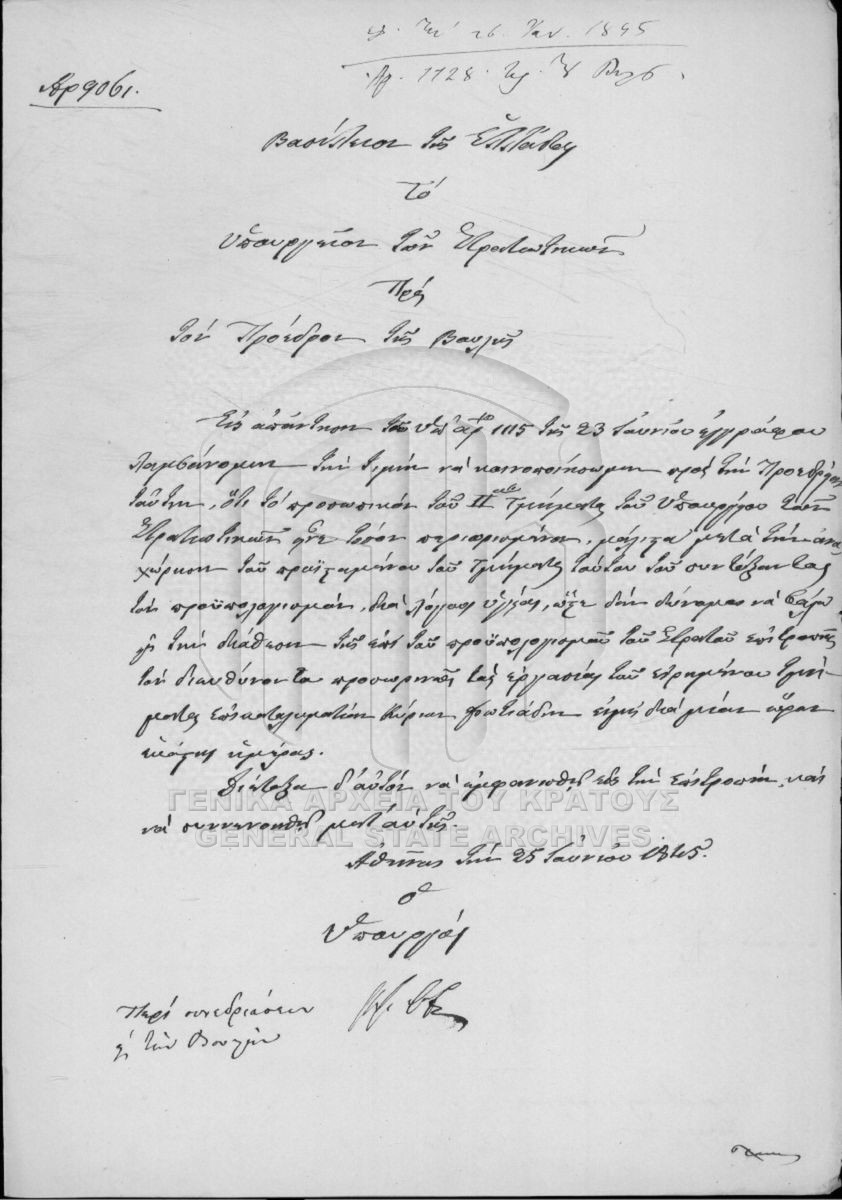 26 Ιουν. 1845
Αρ. 1128.
Αρ 9061.
Βασίλειον τῆς Ἑλλάδος
Τὸ
Ὑπουργεῖον τῶν Στρατιωτικῶν
Πρὸς
τὸν Πρόεδρον τῆς Βουλῆς
Εἰς ἀπάντησιν τοῦ ὑπ' ἀρ 1115 τῆς 23 Ἰουνίου ἐγγράφου
λαμβάνομεν τὴν τιμὴν νὰ κοινοποιήσωμεν πρὸς τὴν Προεδρίαν
ταύτην, ὅτι τὸ προσωπικὸν τοῦ ΙΙ Τμήματος τοῦ Ὑπουργείου τῶν
Στρατιωτικῶν τόσον περιορισμένον, μάλιστα μετὰ τὴν ἀνα
χώρησιν τοῦ προϊσταμένου τοῦ Τμήματος τούτου τοῦ συντάξαντος
τὸν προϋπολογισμὸν, διὰ λόγους ὑγείας, ὥστε δὲν δύναμαι νὰ βάλω
εἰς τὴν διάθεσιν τῆς ἐπὶ τοῦ προϋπολογισμοῦ τοῦ Στρατοῦ ἐπιτροπῆς
τὸν διευθύνοντα προσωρινῶς τὰς ἐργασίας τοῦ εἰρημένου τμή
ματος Κύριον Φωτιάδην εἰμὴ διὰ μίαν ὥραν
ἑκάστης ἡμέρας.
Διέταξα δ' αὐτὸν νὰ ἐμφανισθῇ εἰς τὴν ἐπιτροπὴν, καὶ
νὰ συνεννοηθῇ μετ' αὐτῆς.
ΓΕΝΙΚΑ ΑΡΧΕΙΑ ΤΟΥ ΚΡΑΤΟΥΣ
GENERAL STATE ARCHIVES
Ἀθῆναι τὴν 25 Ἰουνίου 1845.
ὁ
Ὑπουργὸς
Περὶ συνεδριάσεων
εἰς τὴν Βουλὴν